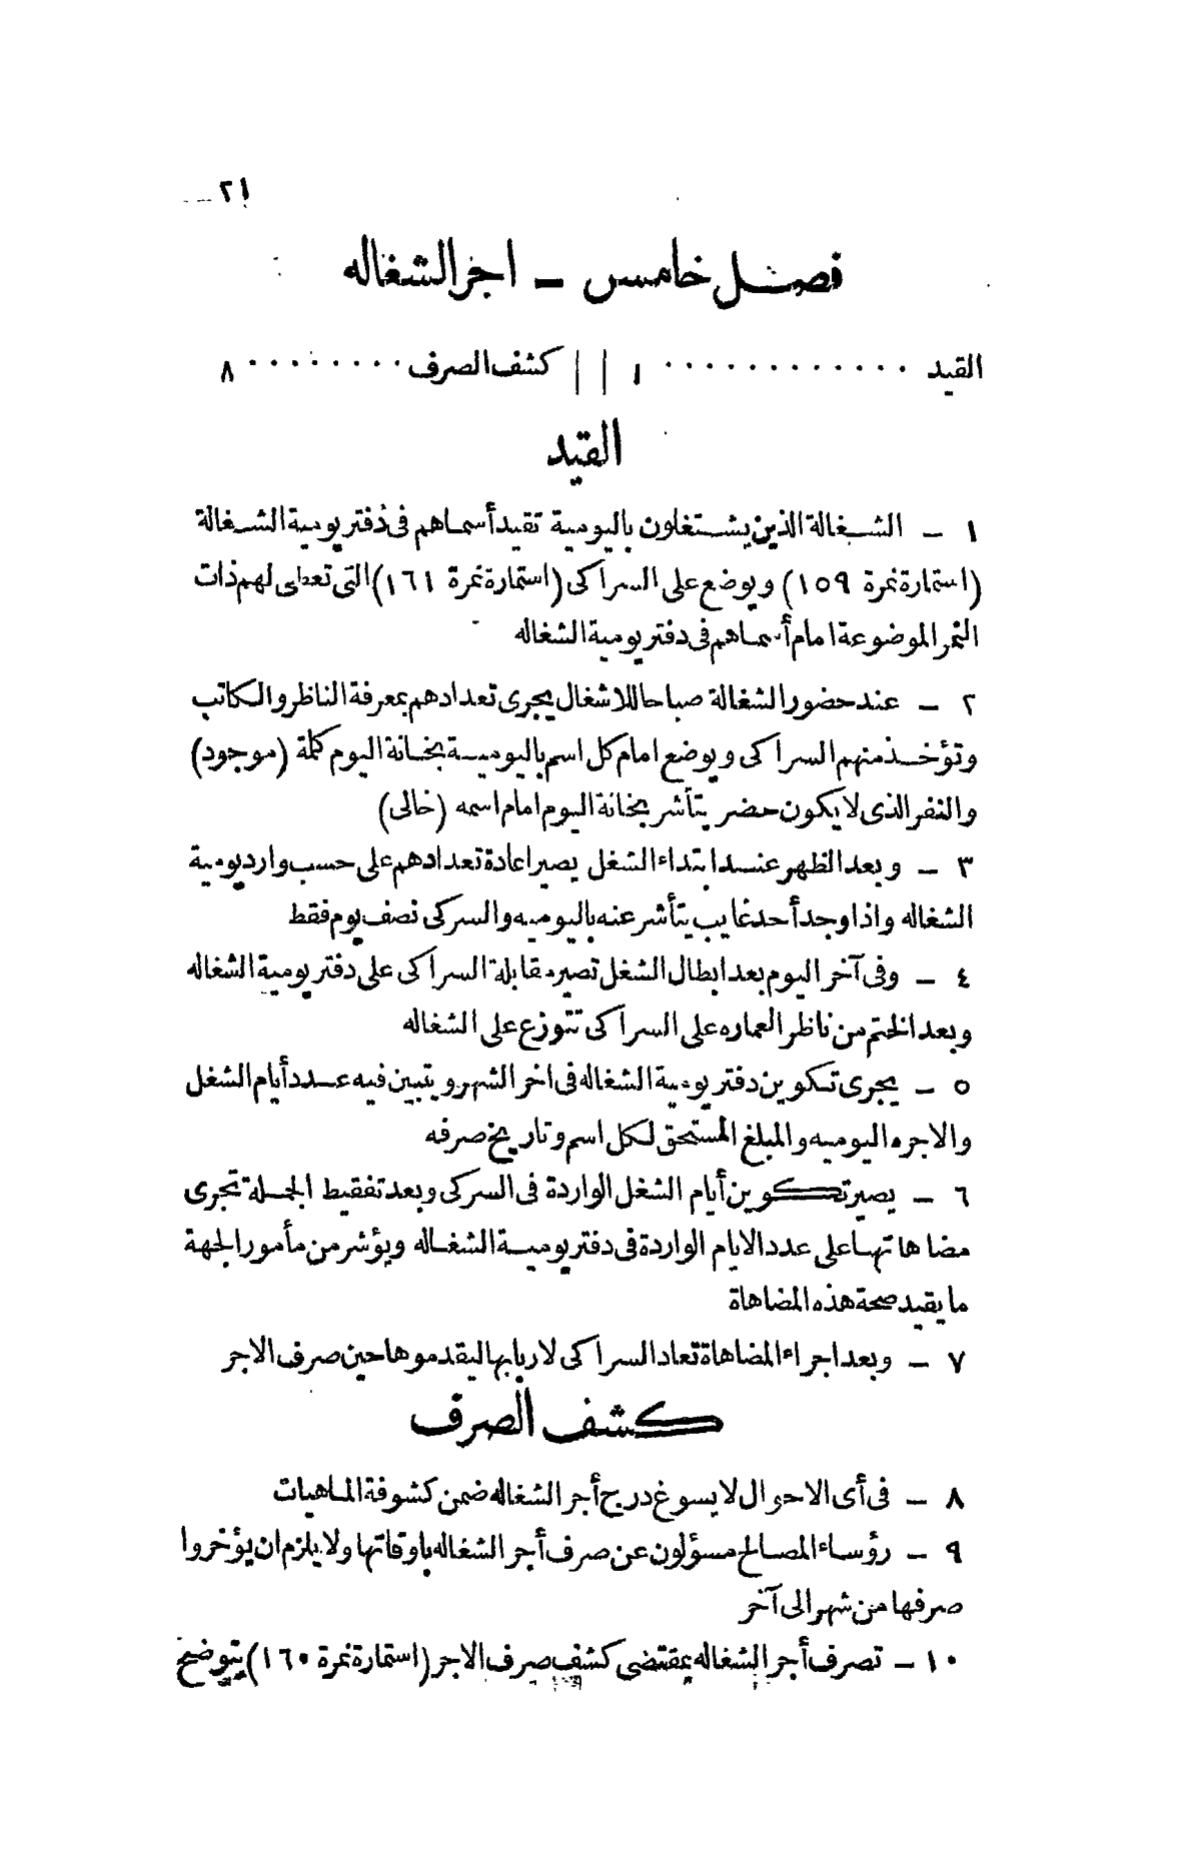 ٢١
فصل خامس — اجر الشغاله
القيد ............ ١ || كشف الصرف ........ ٨
القيد
١ — الشغالة الذين يشتغلون باليومية تقيد أسماهم فى دفتر يومية الشغالة
(استمارة نمرة ١٥٩) ويوضع على السراكى (استمارة نمرة ١٦١) التى تعطى لهم ذات
النمر الموضوعة امام أسماهم فى دفتر يومية الشغاله
٢ — عند حضور الشغالة صباحا للاشغال يجرى تعدادهم بمعرفة الناظر والكاتب
وتؤخذ منهم السراكى ويوضع امام كل اسم باليومية بخانة اليوم كلمة (موجود)
والنفر الذى لا يكون حضر يتأشر بخانة اليوم امام اسمه (خالى)
٣ — وبعد الظهر عند ابتداء الشغل يصير اعادة تعدادهم على حسب وارد يومية
الشغاله واذا وجد أحد غايب يتأشر عنه باليوميه والسركى نصف يوم فقط
٤ — وفى آخر اليوم بعد ابطال الشغل تصير مقابلة السراكى على دفتر يومية الشغاله
وبعد الختم من ناظر العماره على السراكى تتوزع على الشغاله
٥ — يجرى تكوين دفتر يومية الشغاله فى اخر الشهر ويتبين فيه عدد أيام الشغل
والاجره اليوميه والمبلغ المستحق لكل اسم وتاريخ صرفه
٦ — يصير تكوين أيام الشغل الواردة فى السركى وبعد تفقيط الجملة تجرى
مضاهاتها على عدد الايام الواردة فى دفتر يومية الشغاله ويؤشر من مأمور الجهة
ما يفيد صحة هذه المضاهاة
٧ — وبعد اجراء المضاهاة تعاد السراكى لاربابها ليقدموها حين صرف الاجر
كشف الصرف
٨ — فى أى الاحوال لا يسوغ درج أجر الشغاله ضمن كشوفة الماهيات
٩ — رؤساء المصالح مسؤلون عن صرف أجر الشغاله باوقاتها ولا يلزم ان يؤخروا
صرفها من شهر الى آخر
١٠ — تصرف أجر الشغاله بمقتضى كشف صرف الاجر (استمارة نمرة ١٦٠) يتوضح